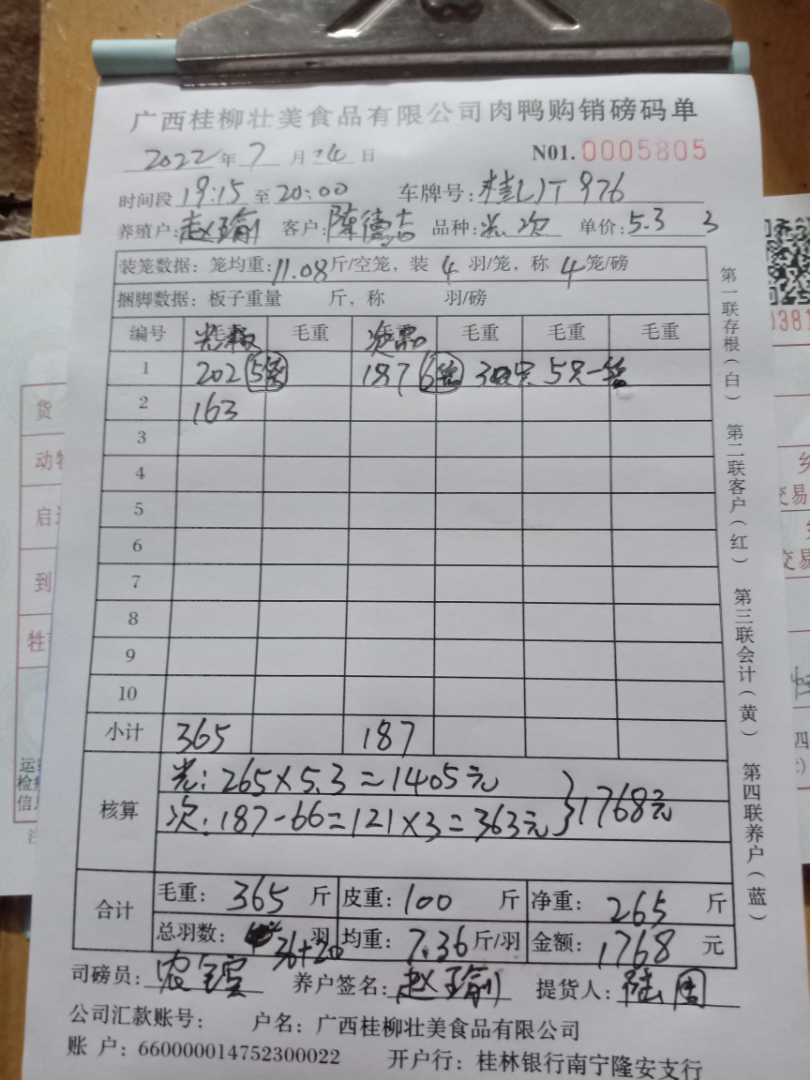 广西桂柳壮美食品有限公司肉鸭购销磅码单
2022年7月24日 N01.0005805
时间段19:15至20:00 车牌号:桂LJT976
养殖户:赵瑜 客户:陈德志 品种:光.次 单价:5.3 3
装笼数据:笼均重:11.08斤/空笼,装4羽/笼,称4笼/磅
捆脚数据:板子重量 斤,称 羽/磅
编号 毛重 毛重 毛重 毛重 毛重
1 202 5笼 187 6笼 5只一笼
2 163
3
4
5
6
7
8
9
10
小计 365 187
核算
光:265×5.3=1405元
次:187-66=121×3=363元 }1768元
合计
毛重:365斤 皮重:100斤 净重:265斤
总羽数:36+20羽 均重:7.36斤/羽 金额:1768元
司磅员: 养户签名:赵瑜 提货人:陆
公司汇款账号: 户名:广西桂柳壮美食品有限公司
账 户:660000014752300022 开户行:桂林银行南宁隆安支行
第一联存根(白) 第二联客户(红) 第三联会计(黄) 第四联养户(蓝)
货
动物
启运
到
牲
运
检
信息
注
0381
乡
交易
交易
四